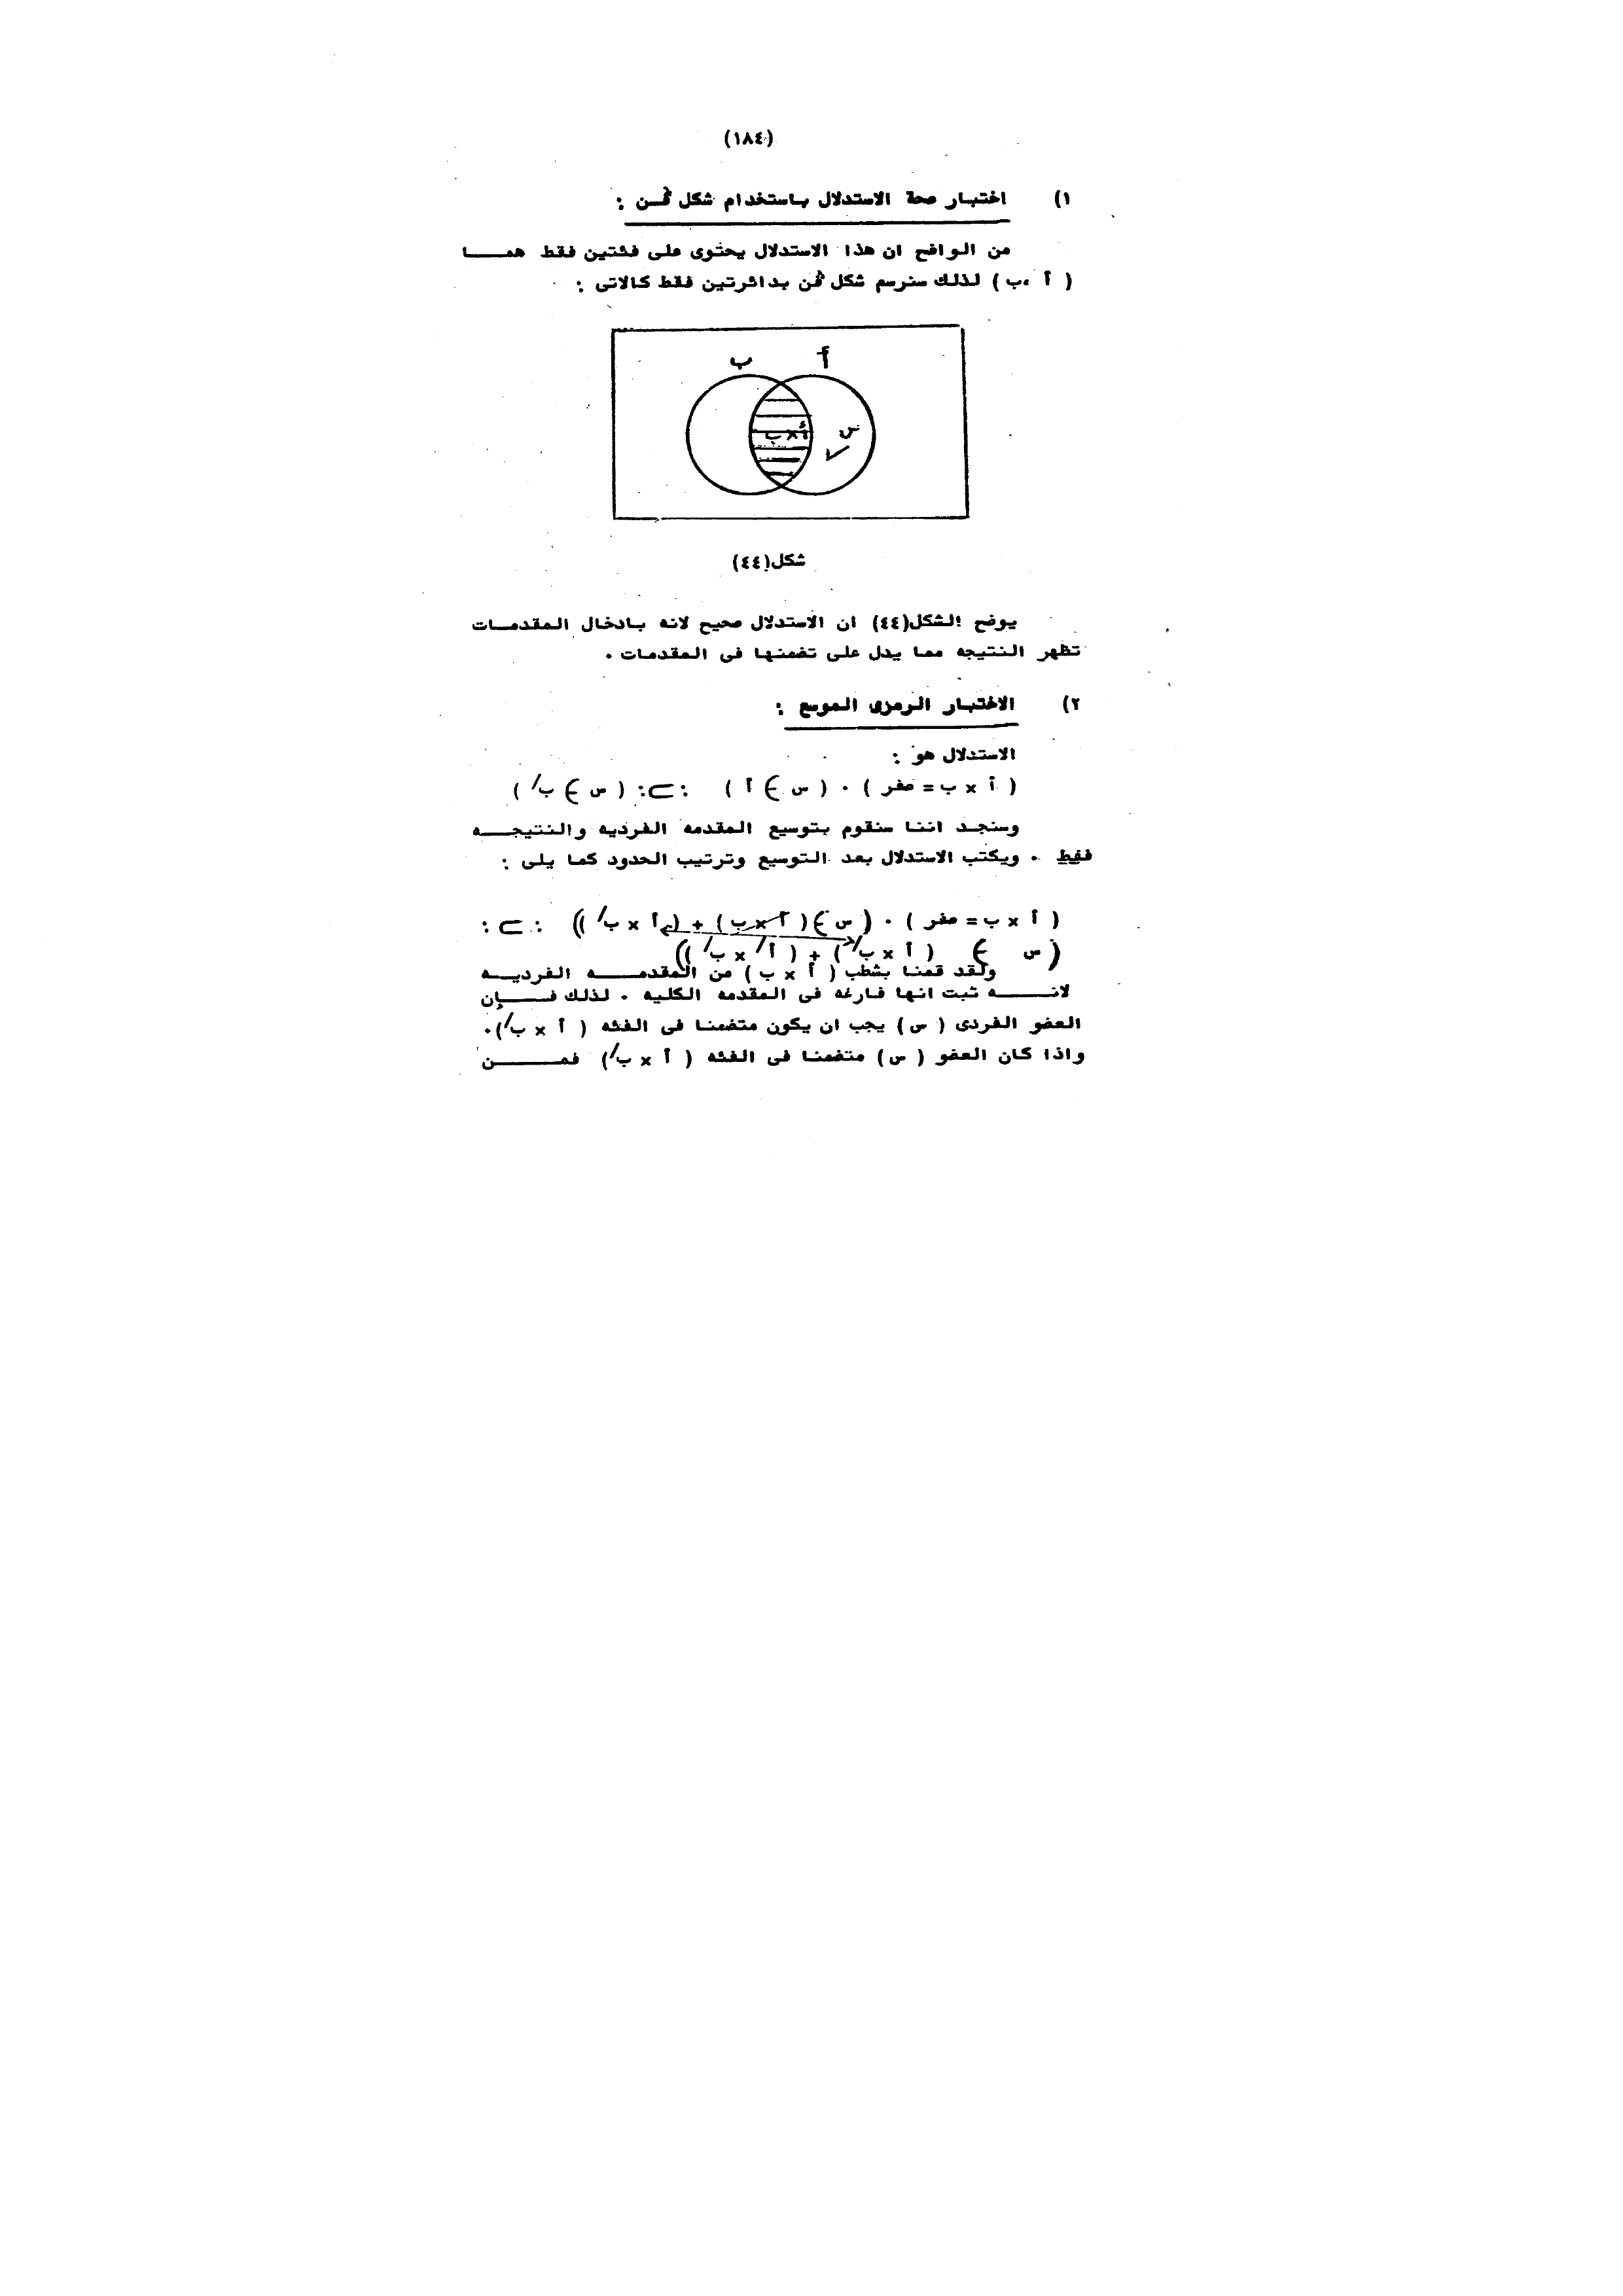 (١٨٤)
١) اختبار صحة الاستدلال باستخدام شكل فـن :
من الواضح ان هذا الاستدلال يحتوى على فئتين فقط همـــا
( أ ،ب ) لذلك سنرسم شكل فن بدائرتين فقط كالاتى :
ب أ
أ×ب س
شكل(٤٤)
يوضح الشكل(٤٤) ان الاستدلال صحيح لانه بادخال المقدمــات
تظهر النتيجه مما يدل على تضمنها فى المقدمات ٠
٢) الاختبار الرمزى الموسع :
الاستدلال هو :
( أ × ب = صفر ) ٠ ( س ∋ أ ) :⊃: ( س ∋ ب/ )
وسنجد اننا سنقوم بتوسيع المقدمه الفرديه والنتيجـــه
فقط ٠ ويكتب الاستدلال بعد التوسيع وترتيب الحدود كما يلى :
( أ × ب = صفر ) ٠ ( س ∋ ( أ × ب ) + ( أ × ب/ )) :⊃:
( س ∋ ( أ × ب/ ) + ( أ/ × ب/ ))
ولقد قمنا بشطب ( أ × ب ) من المقدمـــه الفرديــه
لانـــه ثبت انها فارغه فى المقدمه الكليه ٠ لذلك فــإن
العضو الفردى ( س ) يجب ان يكون متضمنا فى الفئه ( أ × ب/ )٠
واذا كان العضو ( س ) متضمنا فى الفئه ( أ × ب/ ) فمـــن